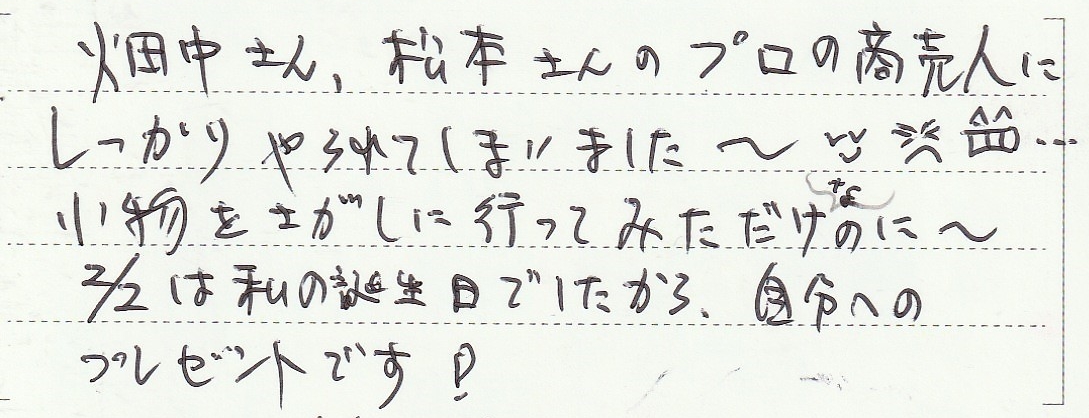 畑中さん、松本さんのプロの商売人に
しっかりやられてしまいました〜 …
小物をさがしに行ってみただけなのに〜
2/2は私の誕生日でしたから、自分への
プレゼントです!